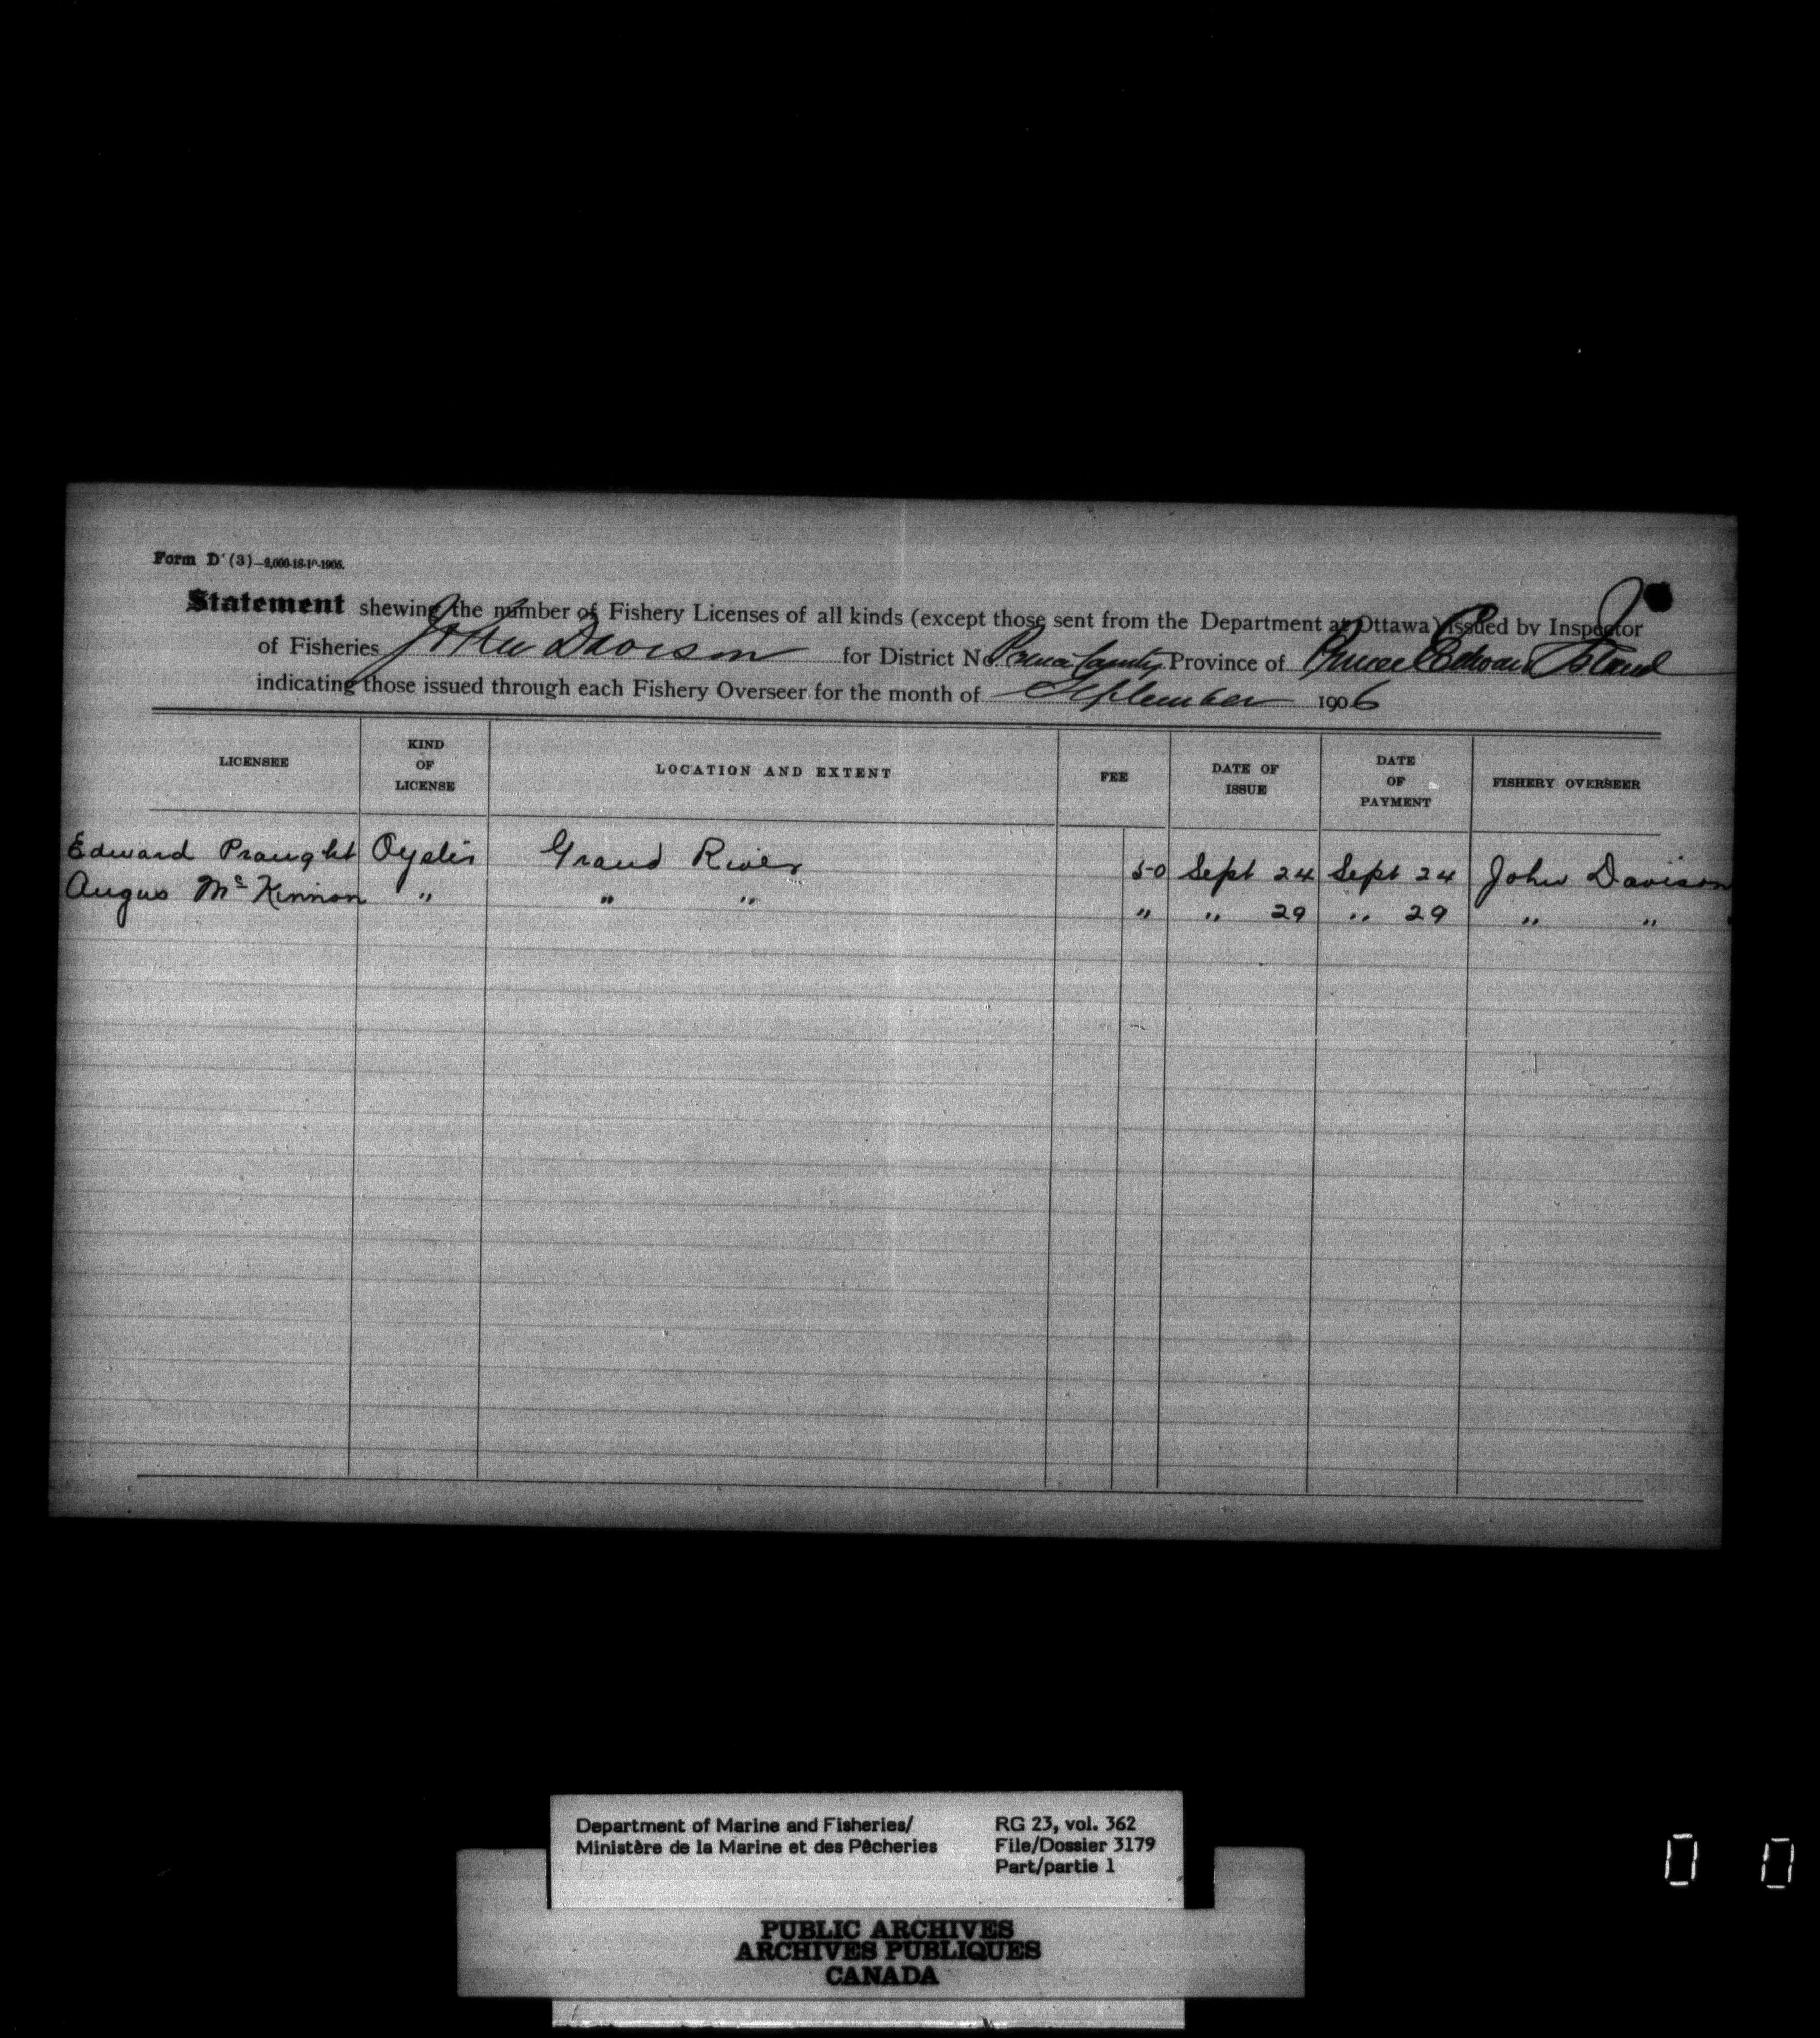 Form D (3)—2,000-18-10-1905.
Statement shewing the number of Fishery Licenses of all kinds (except those sent from the Department at Ottawa) issued by Inspector
of Fisheries John Davison for District No. Prince County Province of Prince Edward Island
indicating those issued through each Fishery Overseer for the month of September 1906
LICENSEE KIND OF LICENSE LOCATION AND EXTENT FEE DATE OF ISSUE DATE OF PAYMENT FISHERY OVERSEER
Edward Praught Oyster Grand River 50 Sept 24 Sept 24 John Davison
Angus Mc Kinnon " " " " " 29 " 29 " "
Department of Marine and Fisheries/ RG 23, vol. 362
Ministère de la Marine et des Pêcheries File/Dossier 3179
Part/partie 1
PUBLIC ARCHIVES
ARCHIVES PUBLIQUES
CANADA
0 0